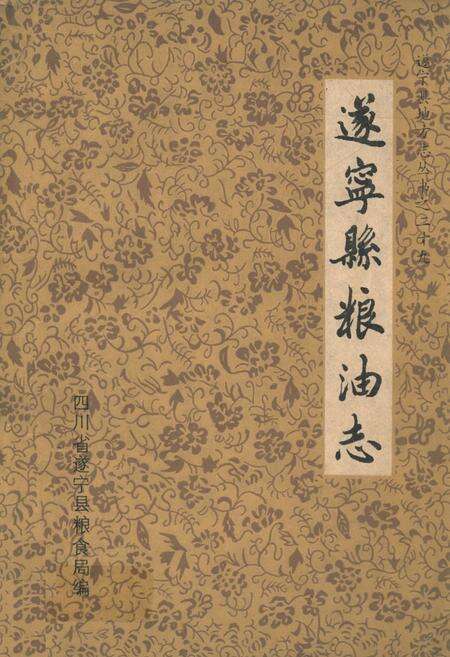 遂宁县地方志丛书之三十九
遂寧縣粮油志
四川省遂宁县粮食局编